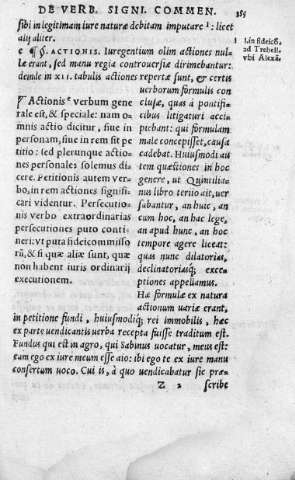 DE VERB. SIGNI. COMMEN. 355
sibi in legitimam iure naturæ debitam imputare¹: licet
alij aliter.
1 In fideicõ,
ad Trebell.
vbi Alexã.
c ¶§. ACTIONIS. Iure gentium olim actiones nul-
læ erant, sed manu regia controuersiæ dirimebantur:
deinde in XII. tabulis actiones repertæ sunt, & certis
¶Actionis verbum gene
rale est, & speciale: nam o
mnis actio dicitur, siue in
personam, siue in rem sit pe
titio: sed plerunque actio
nes personales solemus di
cere. Petitionis autem ver-
bo, in rem actiones signifi-
cari videntur. Persecutio-
nis verbo extraordinarias
persecutiones puto conti-
neri: vt puta fideicommisso
rũ, & si quæ aliæ sunt, quæ
non habent iuris ordinarij
executionem.
uerborum formulis con
clusæ, quas à pontifi-
cibus litigaturi acci-
piebant: qui formulam
male concepisset, causa
cadebat. Huiusmodi au
tem quæstiones in hoc
genere, ut Quintilia-
nus libro tertio ait, uer
sabantur, an huic, an
cum hoc, an hac lege,
an apud hunc, an hoc
tempore agere liceat:
quas nunc dilatorias,
declinatoriasq; exce
ptiones appellamus.
Hæ formulæ ex natura
actionum uariæ erant,
in petitione fundi, huiusmodiq; rei immobilis, hæc
ex parte uendicantis uerba recepta fuisse traditum est.
Fundus qui est in agro, qui Sabinus uocatur, meus est:
eam ego ex iure meum esse aio: ibi ego te ex iure manu
consertum uoco. Cui is, à quo uendicabatur sic præ-
Z 2 scribe